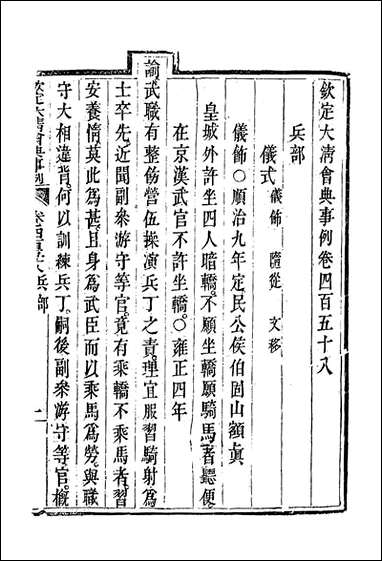 欽定大清會典事例卷四百五十八
兵部
儀式 儀飾 隨從 文移
儀飾○順治九年定民公侯伯固山額眞
皇城外許坐四人暗轎不願坐轎願騎馬者聽便
在京漢武官不許坐轎○雍正四年
諭武職有整飭營伍操演兵丁之責理宜服習騎射爲
士卒先近聞副叅游守等官竟有乘轎不乘馬者習
安養惰莫此爲甚且身爲武臣而以乘馬爲勞與職
守大相違背何以訓練兵丁嗣後副叅游守等官概
欽定大清會典事例 卷四百五十八 兵部 一